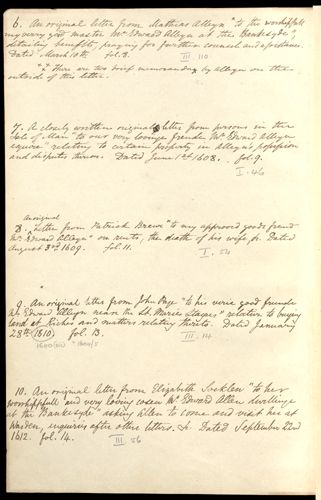 6. An original letter from Mathias Alleyn "to the worshipfull
my verry good master Mr Edward Alleyn at the Bankesyde,"
detailing benefits, praying for further counsel and assistance.
Dated March 10th fol. 8. III 110
** There are two brief memoranda by Alleyn on the
outside of this letter.
7. A closely written original letter from persons in the
Isle of Man "to our very loving frende Mr Edward Alleyn
squire" relating to certain property in Alleyn's possession
and disputes theron. Dated June 1st 1608. fol. 9.
I. 46
8. An original letter from Patrick Brewe "to my approved goode freend
Mr Edward Alleyn" on rents, the death of his wife, &c. Dated
August 8th 1609. fol. 11. I. 54
9. An original letter from John Pyge "to his verie good freinde
Mr Edward Alleyn neare the St. Maries Stages" relative to buying
land at and matters relating thereto. Dated January
28th (1810) fol. 13. III. 14
10. An original letter from Elizabeth Socklen "to her
worshipfull and very loving cosen Mr Edward Allen dwellinge
at the Bankesyde" asking Allen to come and visit her at
Walden, enquiries after other letters. &c. Dated September 22nd
1612. fol. 14. III. 56